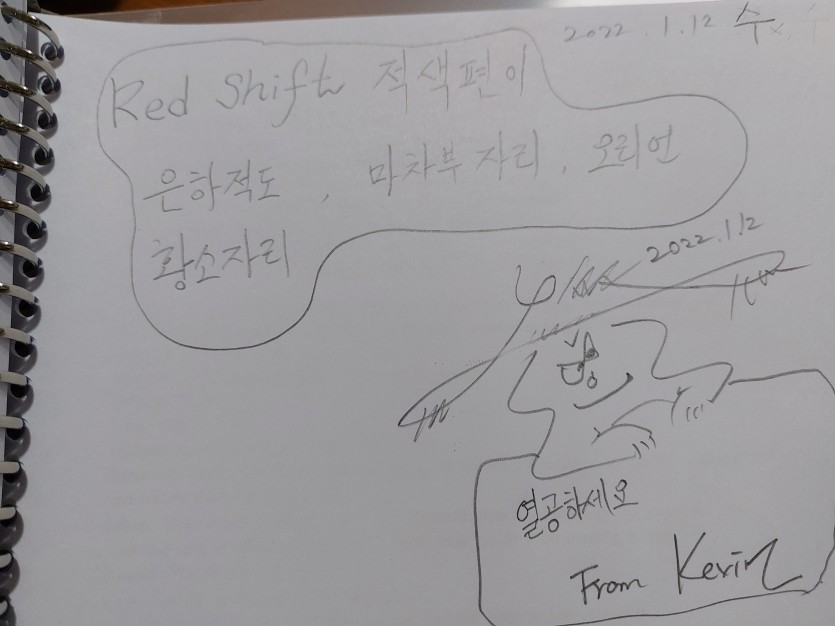 2022.1.12 수
Red Shift 적색편이
은하적도, 마차부자리, 오리언
황소자리
2022.1.12
열공하세요
From Kevin